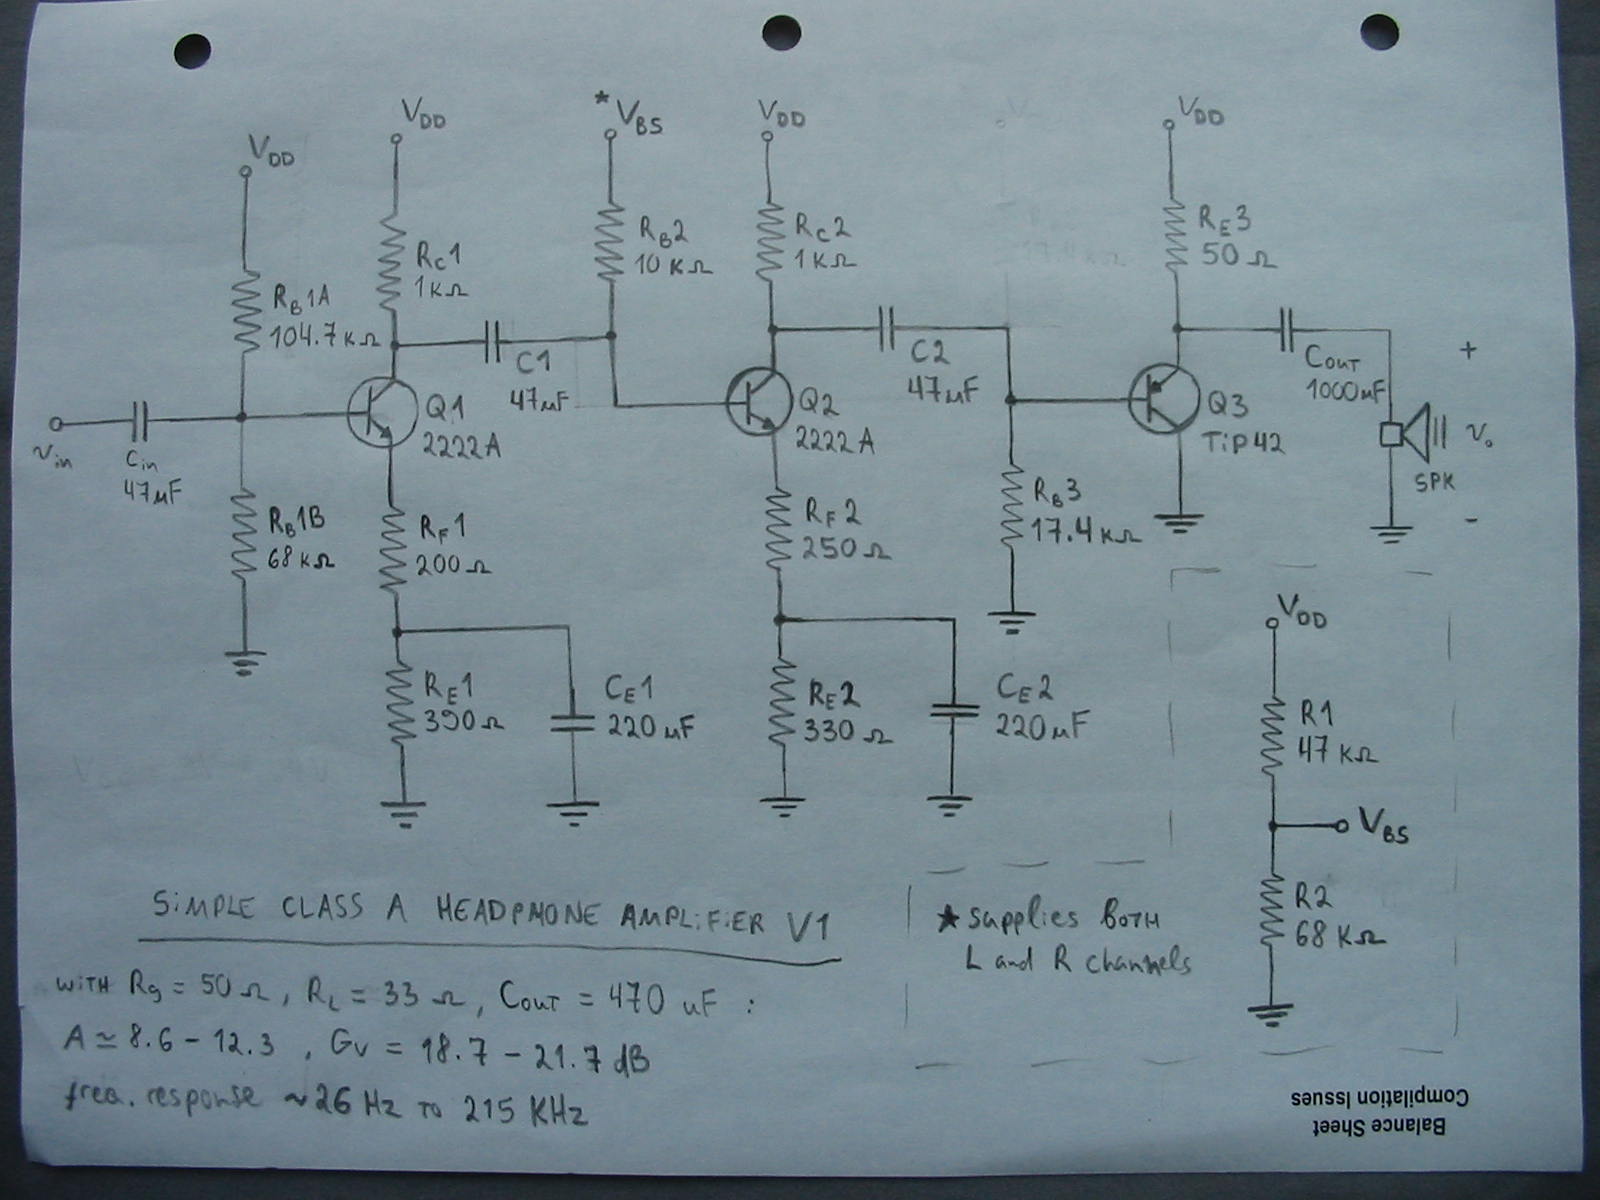 VDD
VDD
*VBS
VDD
VDD
RB1A
104.7KΩ
RC1
1KΩ
RB2
10KΩ
RC2
1KΩ
RE3
50Ω
C1
47µF
C2
47µF
COUT
1000µF
+
Vin
Cin
47µF
Q1
2222A
Q2
2222A
Q3
TiP42
Vo
SPK
-
RB1B
68KΩ
RF1
200Ω
RF2
250Ω
RB3
17.4KΩ
RE1
390Ω
CE1
220µF
RE2
330Ω
CE2
220µF
VDD
R1
47KΩ
VBS
R2
68KΩ
SiMPLE CLASS A HEADPHONE AMPLiFiER V1
WiTH Rg = 50Ω, RL = 33Ω, COUT = 470 uF :
A ≃ 8.6 - 12.3 , GV = 18.7 - 21.7 dB
freq. response ~26 Hz To 215 KHz
★ Supplies BOTH
L and R channels
Balance Sheet
Compilation Issues